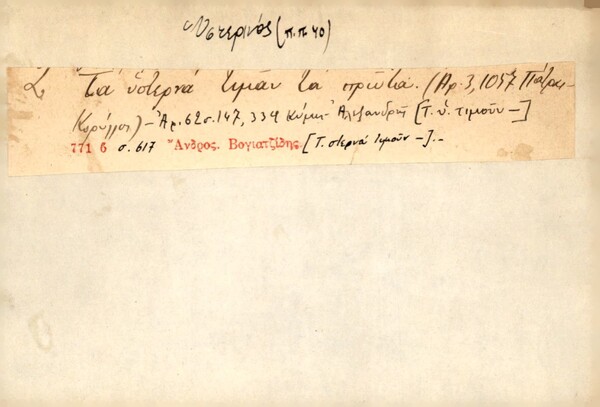 Ὑστερινός (π.π 40)
Τὰ ὕστερνά τιμᾶν τὰ πρῶτα. (Ἀρ. 3, 1057 Πάτραι-
) - Ἀρ. 62 σ. 147, 334 Κύμη - Ἀλεξανδρῆ [Τ. ὕ. τιμοῦν -]
771 6 σ. 617 Ἄνδρος. Βογιατζίδης. [Τ. στερνά τιμοῦν -]. -